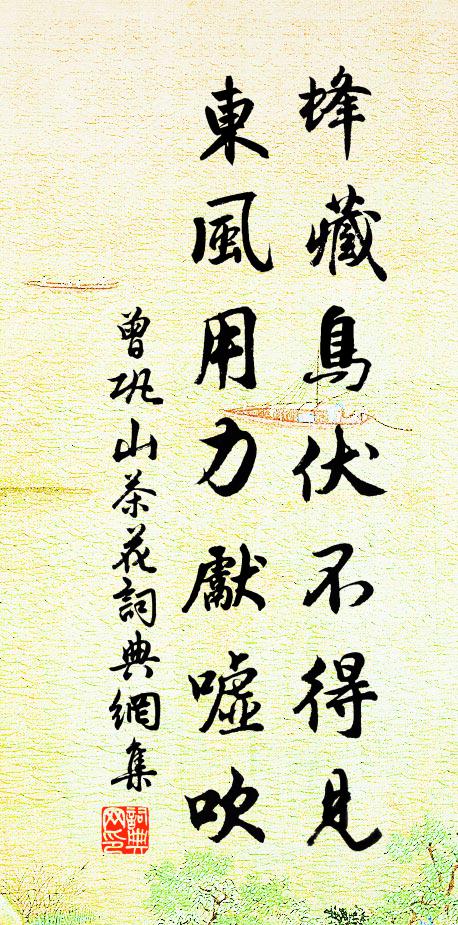 蜂藏鳥伏不得見
東風用力獻噓吹
曾巩山茶花詞典網集
詞典網印